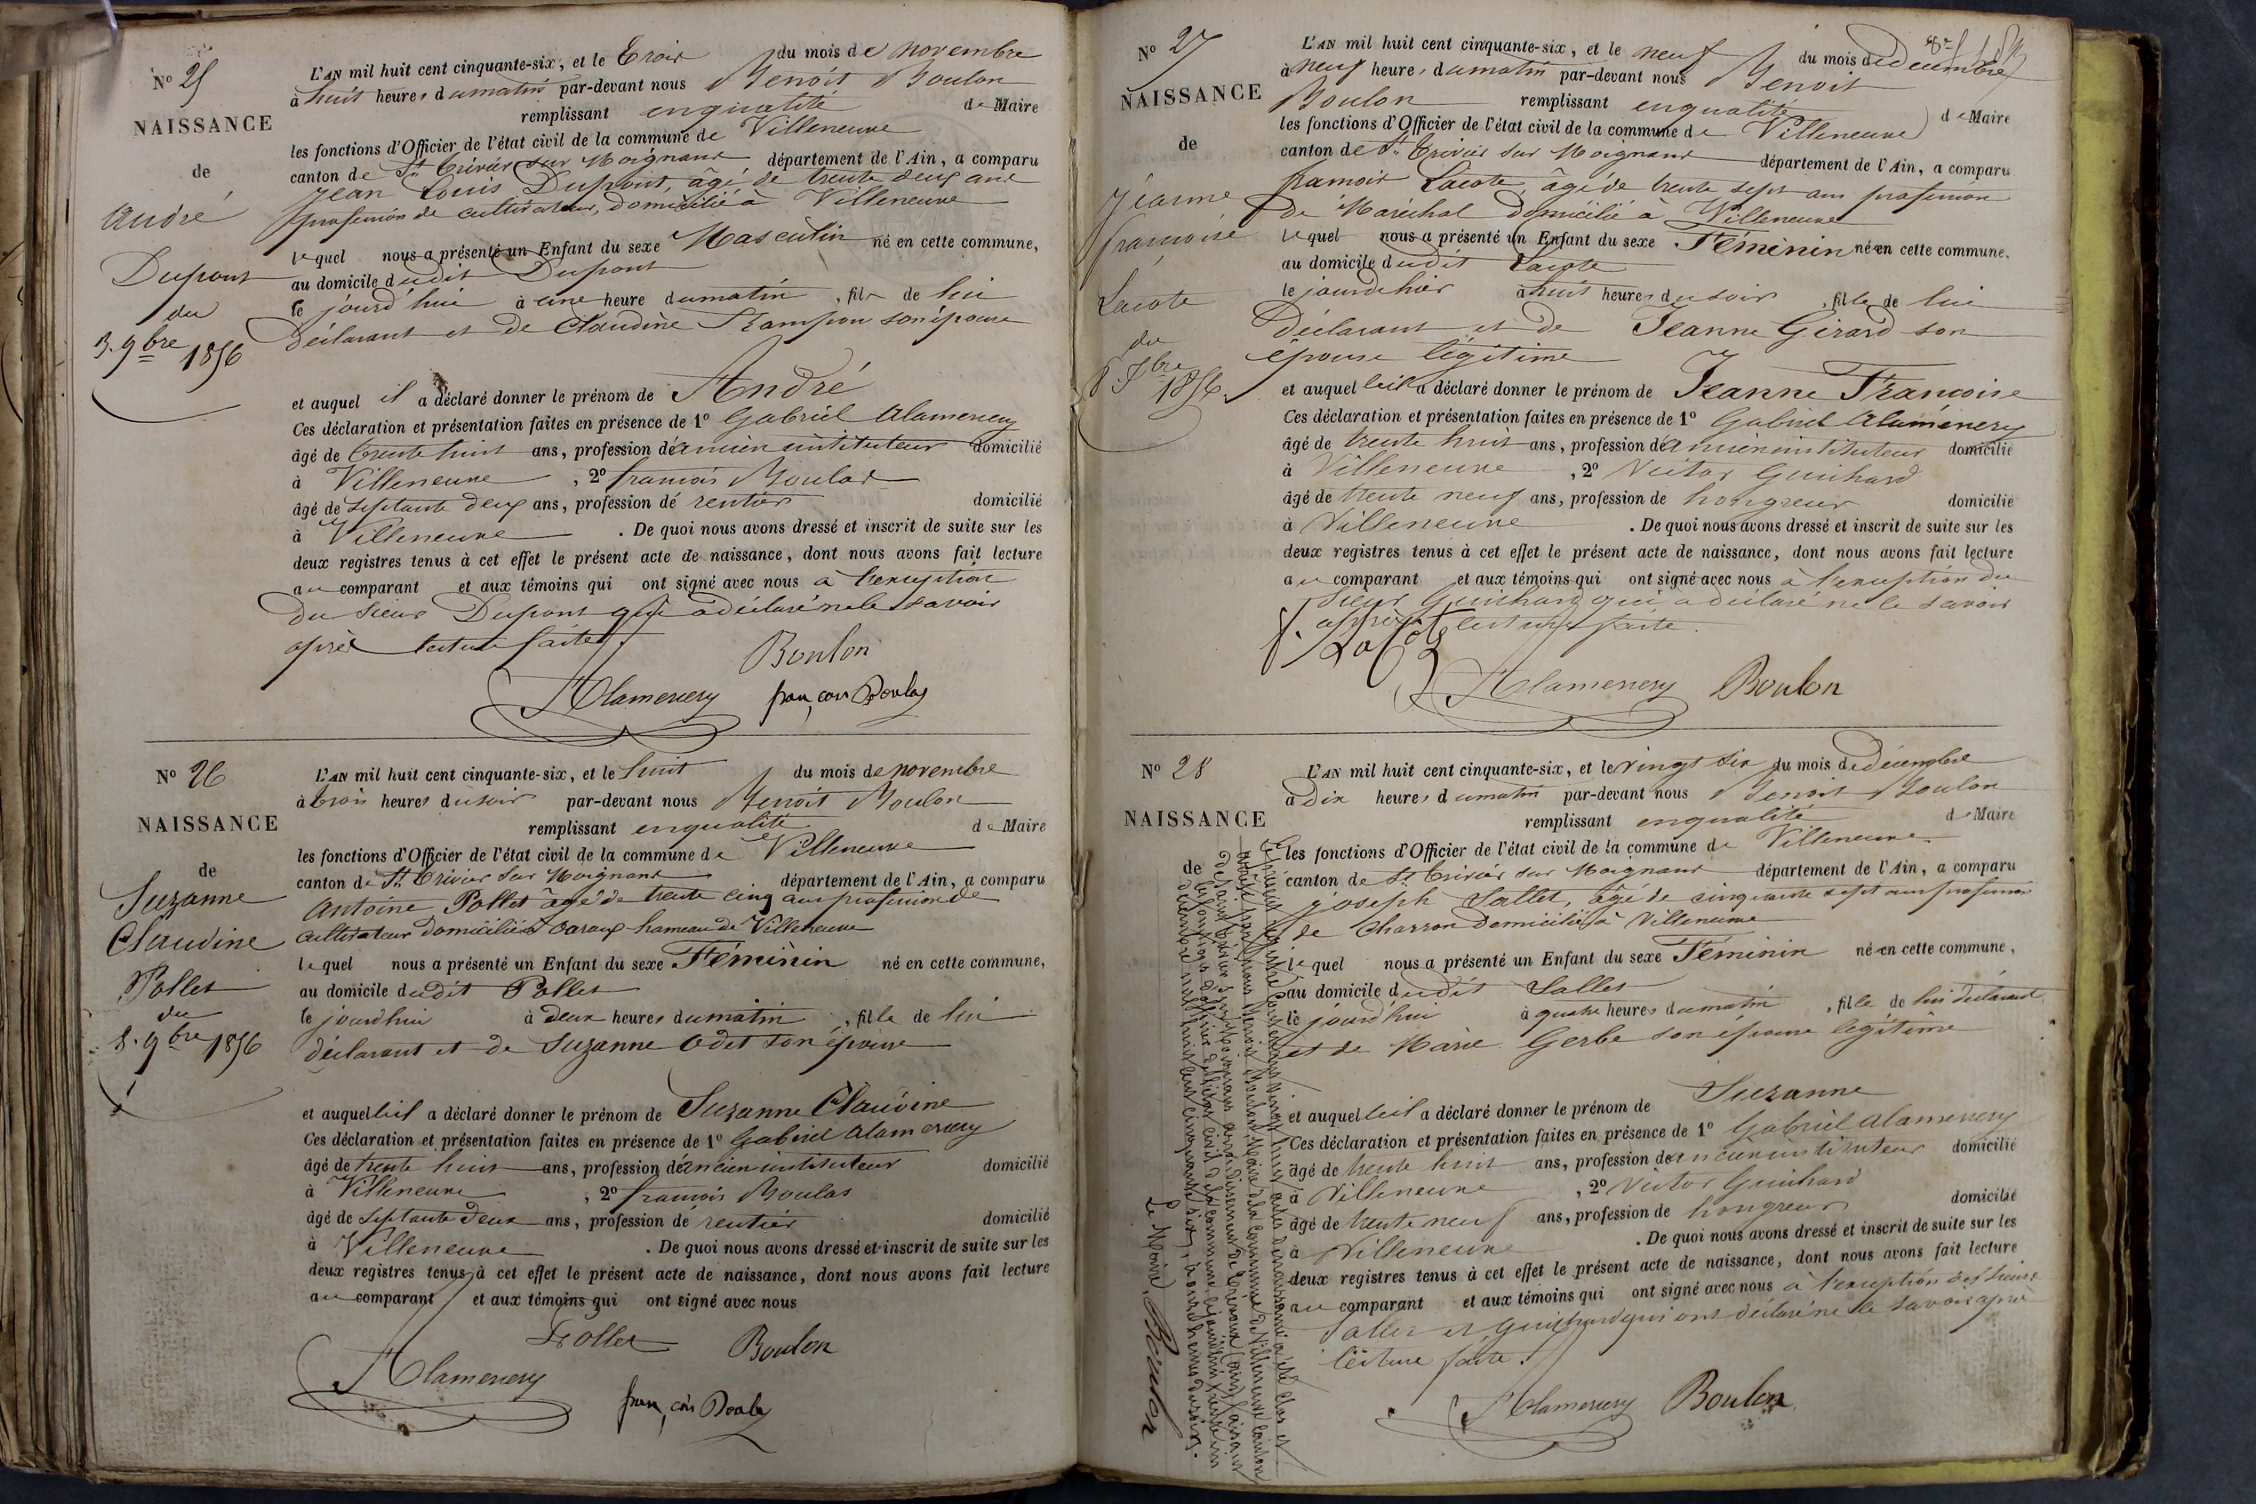 N° 25
NAISSANCE
de
André
Dupont
du
3. 9bre 1856
L'AN mil huit cent cinquante-six, et le Trois du mois de Novembre
à huit heures du matin par-devant nous Benoit Boulon
remplissant en qualité de Maire
les fonctions d'Officier de l'état civil de la commune de Villeneuve
canton de St Trivier sur Moignans département de l'Ain, a comparu
Jean Louis Dupont, âgé de trente deux ans
profession de cultivateur, domicilié à Villeneuve
lequel nous a présenté un Enfant du sexe Masculin né en cette commune,
au domicile dudit Dupont
le jourd'hui à une heure du matin, fils de lui
déclarant et de Claudine Rampon son épouse
et auquel il a déclaré donner le prénom de André
Ces déclaration et présentation faites en présence de 1° Gabriel Alamenery
âgé de trente huit ans, profession d'ancien instituteur domicilié
à Villeneuve, 2° francois Boulas
âgé de septante deux ans, profession de rentier domicilié
à Villeneuve. De quoi nous avons dressé et inscrit de suite sur les
deux registres tenus à cet effet le présent acte de naissance, dont nous avons fait lecture
au comparant et aux témoins qui ont signé avec nous à l'exception
du sieur Dupont qui a déclaré ne le savoir
après lecture faite.
Boulon
Alamenery françois Boulas
N° 26
NAISSANCE
de
Suzanne
Claudine
Pollet
du
8. 9bre 1856
L'AN mil huit cent cinquante-six, et le huit du mois de novembre
à trois heures du soir par-devant nous Benoit Boulon
remplissant en qualité de Maire
les fonctions d'Officier de l'état civil de la commune de Villeneuve
canton de St Trivier sur Moignans département de l'Ain, a comparu
Antoine Pollet âgé de trente cinq ans profession de
cultivateur domicilié à hameau de Villeneuve
lequel nous a présenté un Enfant du sexe Féminin né en cette commune,
au domicile dudit Pollet
le jourd'hui à deux heures du matin, fille de lui
déclarant et de Suzanne Odet son épouse
et auquel il a déclaré donner le prénom de Suzanne Claudine
Ces déclaration et présentation faites en présence de 1° Gabriel Alamenery
âgé de trente huit ans, profession d'ancien instituteur domicilié
à Villeneuve, 2° francois Boulas
âgé de septante deux ans, profession de rentier domicilié
à Villeneuve. De quoi nous avons dressé et inscrit de suite sur les
deux registres tenus à cet effet le présent acte de naissance, dont nous avons fait lecture
au comparant et aux témoins qui ont signé avec nous
Pollet Boulon
Alamenery
françois Boulas
N° 27
NAISSANCE
de
Jeanne
francoise
Lacote
du
1856
L'AN mil huit cent cinquante-six, et le neuf du mois de decembre
à neuf heures du matin par-devant nous Benoit
Boulon remplissant en qualité de Maire
les fonctions d'Officier de l'état civil de la commune de Villeneuve
canton de St Trivier sur Moignans département de l'Ain, a comparu
francois Lacote, âgé de trente sept ans profession
de Maréchal domicilié à Villeneuve
lequel nous a présenté un Enfant du sexe Féminin né en cette commune,
au domicile dudit Lacote
le jourdhier à huit heures du soir, fille de lui
Déclarant et de Jeanne Girard son
épouse légitime
et auquel il a déclaré donner le prénom de Jeanne Francoise
Ces déclaration et présentation faites en présence de 1° Gabriel Alamenery
âgé de trente huit ans, profession d'ancien instituteur domicilié
à Villeneuve, 2° Victor Guichard
âgé de trente neuf ans, profession de hongreur domicilié
à Villeneuve. De quoi nous avons dressé et inscrit de suite sur les
deux registres tenus à cet effet le présent acte de naissance, dont nous avons fait lecture
au comparant et aux témoins qui ont signé avec nous à l'exception du
sieur Guichard qui a déclaré ne le savoir
après lecture faite.
f. Lacote
Alamenery Boulon
N° 28
NAISSANCE
de
L'AN mil huit cent cinquante-six, et le vingt six du mois de décembre
à dix heures du matin par-devant nous Benoit Boulon
remplissant en qualité de Maire
les fonctions d'Officier de l'état civil de la commune de Villeneuve
canton de St Trivier sur Moignans département de l'Ain, a comparu
joseph Sallet, âgé de cinquante sept ans profession
de Charron domicilié à Villeneuve
lequel nous a présenté un Enfant du sexe Féminin né en cette commune,
au domicile dudit Sallet
le jourd'hui à quatre heures du matin, fille de lui déclarant
et de Marie Gerbe son épouse légitime
et auquel il a déclaré donner le prénom de Suzanne
Ces déclaration et présentation faites en présence de 1° Gabriel Alamenery
âgé de trente huit ans, profession d'ancien instituteur domicilié
à Villeneuve, 2° Victor Guichard
âgé de trente neuf ans, profession de hongreur domicilié
à Villeneuve. De quoi nous avons dressé et inscrit de suite sur les
deux registres tenus à cet effet le présent acte de naissance, dont nous avons fait lecture
au comparant et aux témoins qui ont signé avec nous à l'exception des sieurs
Sallet et Guichard qui ont déclaré ne le savoir après
lecture faite.
Alamenery Boulon
Le présent registre contenant vingt huit actes de naissance a été clos et
arrêté par nous Benoit Boulon Maire de la commune de Villeneuve canton
de Saint Trivier sur Moignans arrondissement de Trévoux (Ain) faisant
les fonctions d'officier de l'état civil de la commune
décembre mil huit cent cinquante six, à onze heures du soir.
Le Maire, Boulon